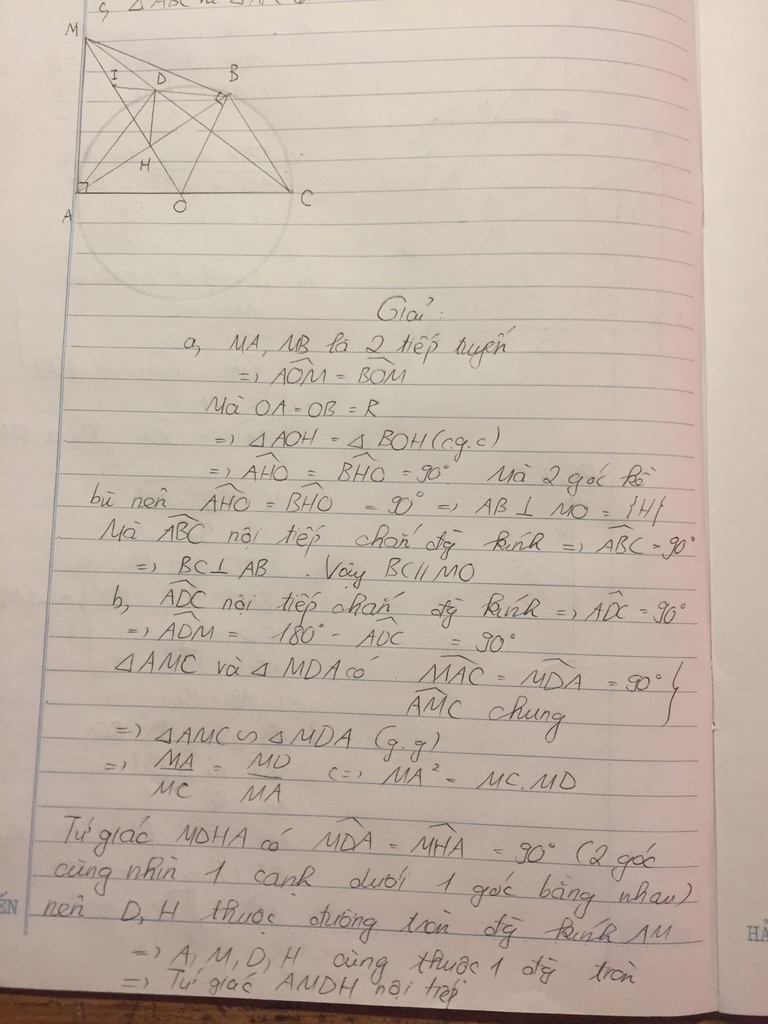 c, △ABC
M
I
D
B
H
A
O
C
Giải:
a, MA, MB là 2 tiếp tuyến
=> \widehat{AOM} = \widehat{BOM}
Mà OA = OB = R
=> △AOH = △BOH (c.g.c)
=> \widehat{AHO} = \widehat{BHO} = 90° Mà 2 góc kề
bù nên \widehat{AHO} = \widehat{BHO} = 90° => AB ⊥ MO = {H}
Mà \widehat{ABC} nội tiếp chắn đg kính => \widehat{ABC} = 90°
=> BC ⊥ AB. Vậy BC // MO
b, \widehat{ADC} nội tiếp chắn đg kính => \widehat{ADC} = 90°
=> \widehat{ADM} = 180° - \widehat{ADC} = 90°
△AMC và △MDA có: \widehat{MAC} = \widehat{MDA} = 90° }
\widehat{AMC} chung
=> △AMC ∽ △MDA (g.g)
=> MA/MC = MD/MA <=> MA² = MC.MD
Tứ giác MDHA có \widehat{MDA} = \widehat{MHA} = 90° (2 góc
cùng nhìn 1 cạnh dưới 1 góc bằng nhau)
nên D, H thuộc đường tròn đg kính AM
=> A, M, D, H cùng thuộc 1 đg tròn
=> Tứ giác AMDH nội tiếp
ẾN
HẢ